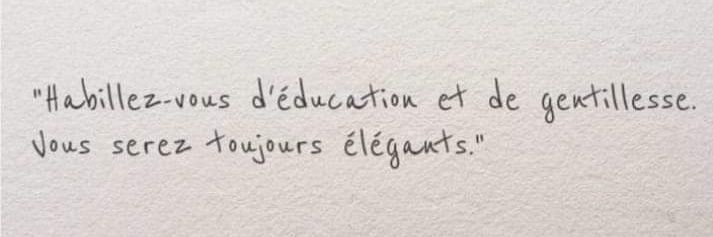 "Habillez-vous d'éducation et de gentillesse.
Vous serez toujours élégants."